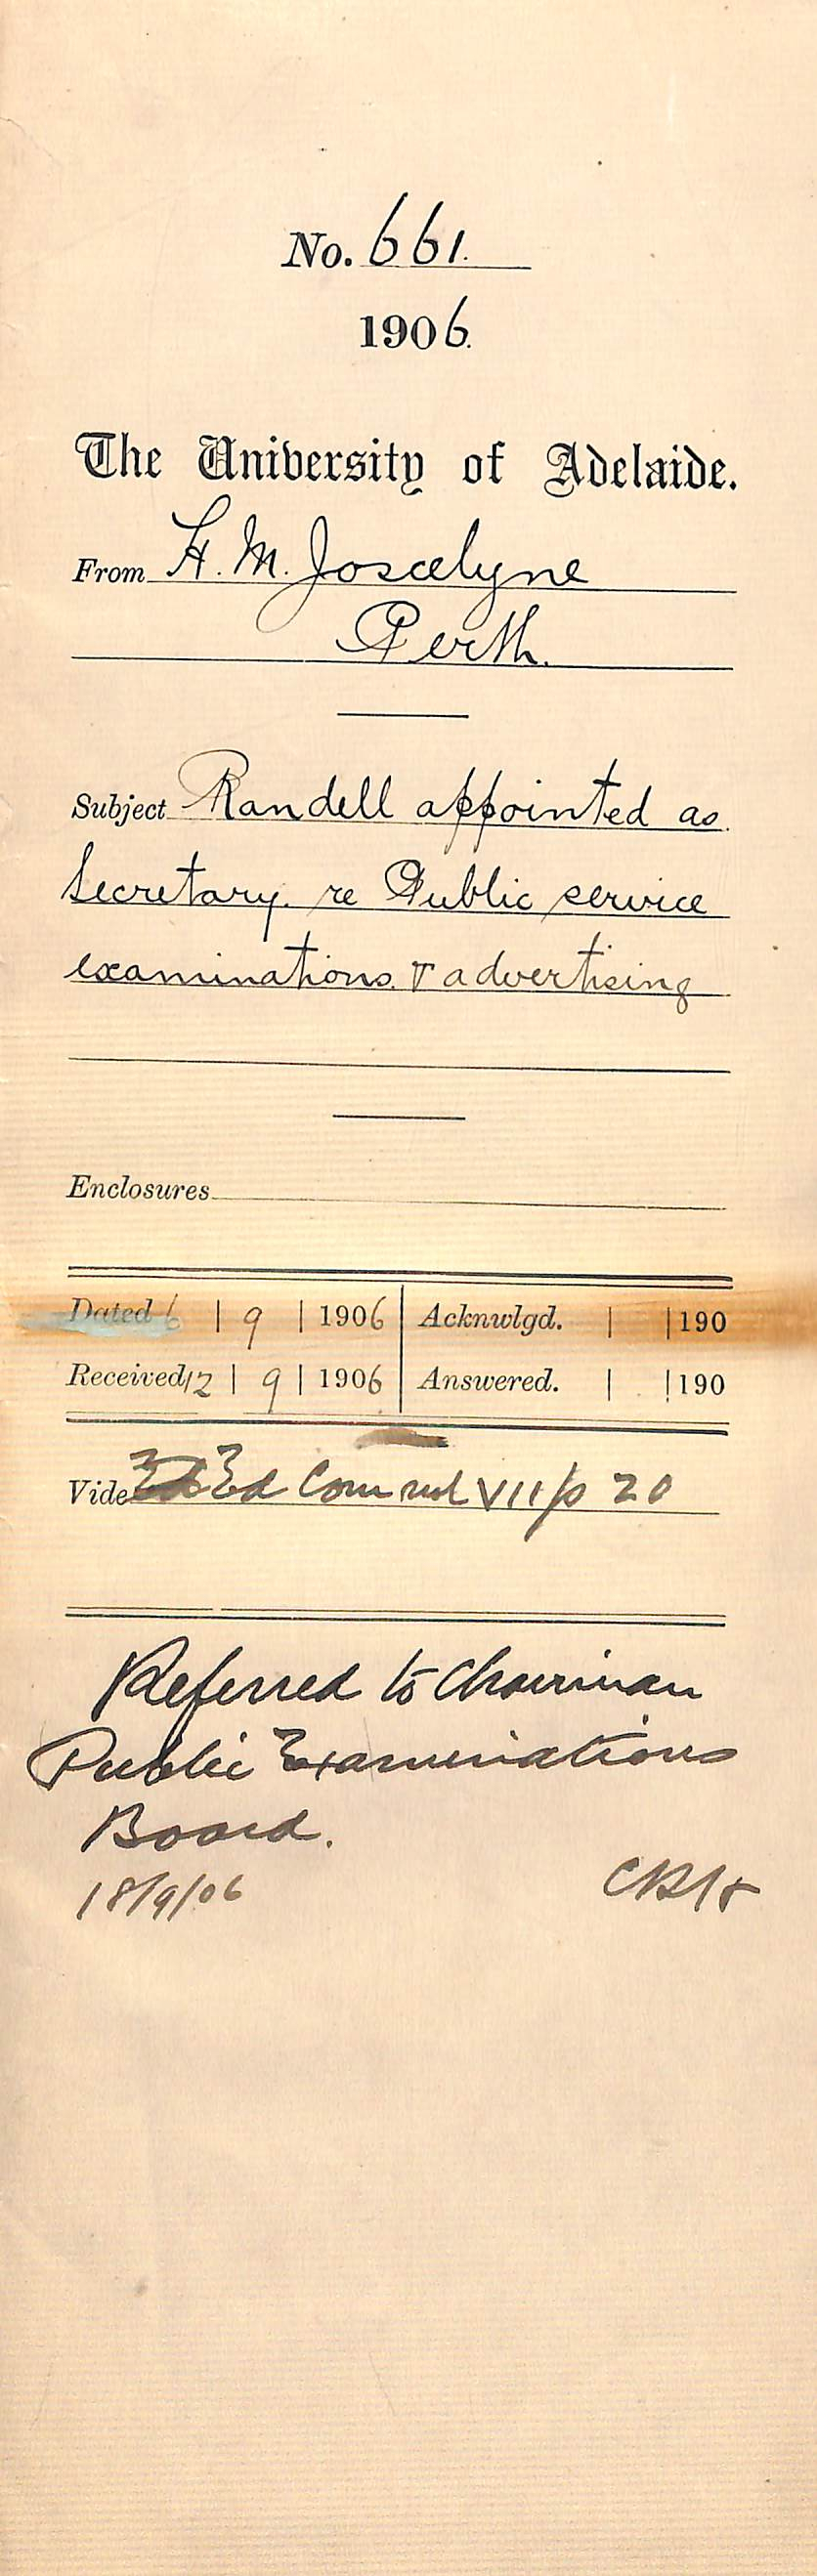 No. 661.
1906.
The University of Adelaide.
From H. M. Joscelyne
Perth.
Subject Randell appointed as
Secretary. re Public service
examinations & advertising
Enclosures
Dated 6 | 9 | 1906 | Acknwlgd. | | 190
Received 12 | 9 | 1906 | Answered. | | 190
Vide Ed Com vol VII p 20
Referred to Chairman
Public Examinations
Board.
18/9/06